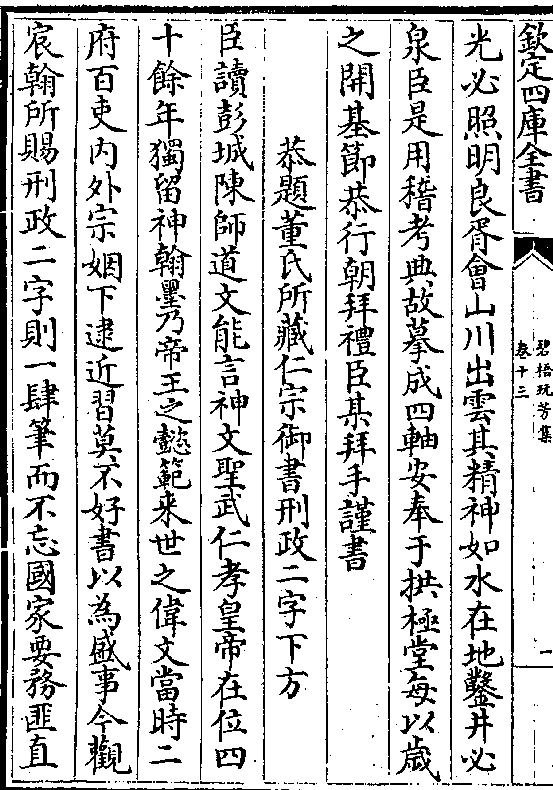 欽定四庫全書
碧梧玩芳集
卷十三
一
光必照明良胥會山川出雲其精神如水在地鑿井必
泉臣是用稽考典故摹成四軸安奉于拱極堂每以歳
之開基節恭行朝拜禮臣某拜手謹書
恭題董氏所藏仁宗御書刑政二字下方
臣讀彭城陳師道文能言神文聖武仁孝皇帝在位四
十餘年獨留神翰墨乃帝王之懿範来世之偉文當時二
府百吏内外宗姻下逮近習莫不好書以為盛事今觀
宸翰所賜刑政二字則一肆筆而不忘國家要務匪直